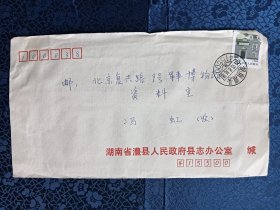 100038
邮,北京复兴路9号军事博物馆
资料室
冯虹(收)
湖南省澧县人民政府县志办公室 缄
415500